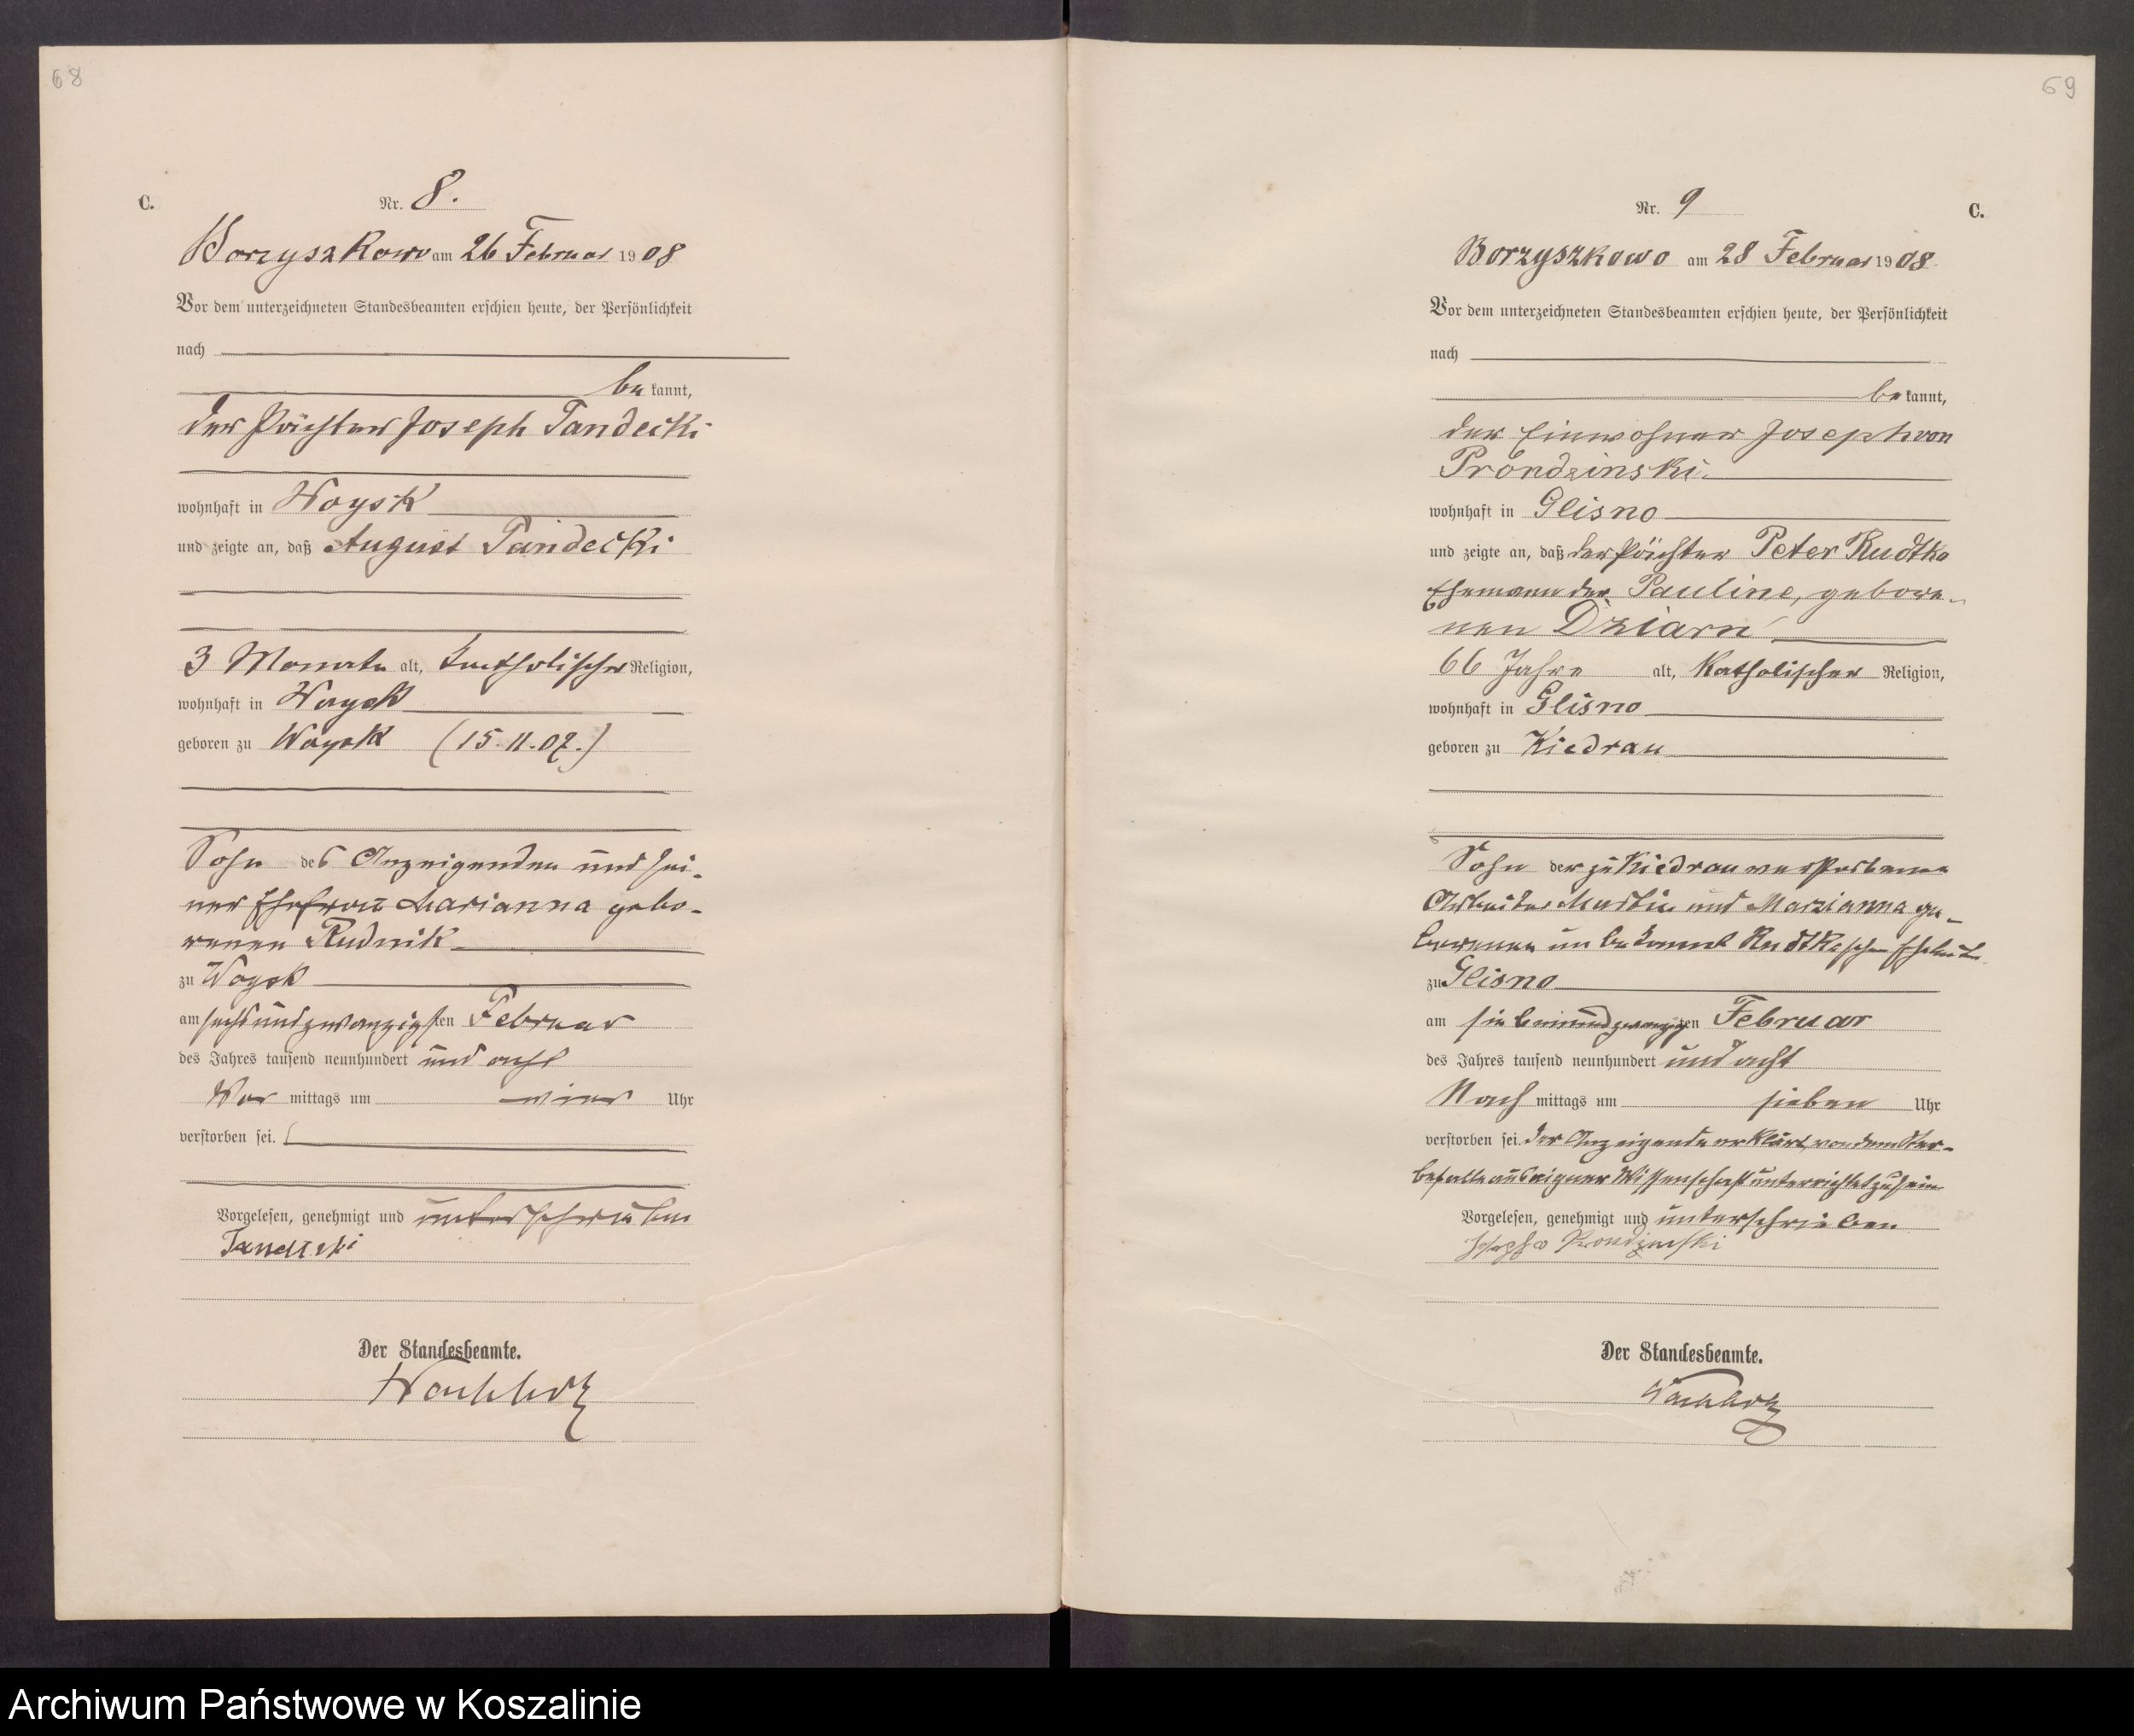 68
C.
Nr. 8.
Borzyszkowo am 26 Februar 1908
Vor dem unterzeichneten Standesbeamten erschien heute, der Persönlichkeit
nach
be kannt,
der Pächter Joseph Tandecki
wohnhaft in Woysk
und zeigte an, daß August Tandecki
3 Monate alt, katholischer Religion,
wohnhaft in Woysk
geboren zu Woysk (15.11.07.)
Sohn des Anzeigenden und sei-
ner Ehefrau Marianna gebo-
renen Rudnik
zu Woysk
am sechsundzwanzigsten Februar
des Jahres tausend neunhundert und acht
Vor mittags um vier Uhr
verstorben sei.
Vorgelesen, genehmigt und unterschrieben
Tandecki
Der Standesbeamte.
69
Nr. 9
C.
Borzyszkowo am 28 Februar 1908
Vor dem unterzeichneten Standesbeamten erschien heute, der Persönlichkeit
nach
be kannt,
der Einwohner Joseph von
Prondzinski
wohnhaft in Glisno
und zeigte an, daß der Pächter Peter Rudtke
Ehemann der Pauline, gebore-
nen Dziarn
66 Jahre alt, katholischer Religion,
wohnhaft in Glisno
geboren zu Kiedrau
Sohn der zu Kiedrau verstorbenen
Arbeiter Martin und Marzianna ge-
borenen unbekannt Rudtkeschen Eheleute
zu Glisno
am siebenundzwanzigsten Februar
des Jahres tausend neunhundert und acht
Nach mittags um sieben Uhr
verstorben sei. Der Anzeigende erklärt, von dem Ster-
befalle aus eigner Wissenschaft unterrichtet zu sein
Vorgelesen, genehmigt und unterschrieben
Joseph v Prondzinski
Der Standesbeamte.
Archiwum Państwowe w Koszalinie